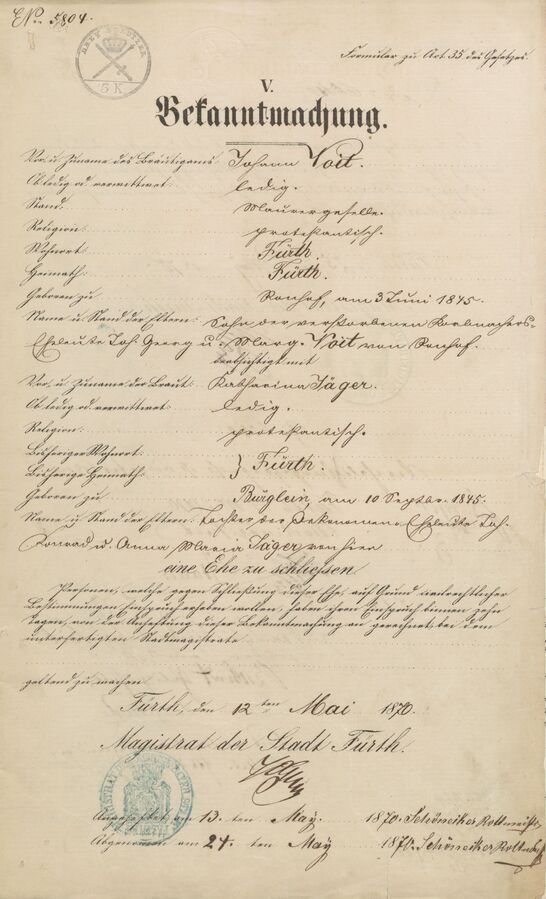 EN: 5804.
3 K
Formular zu Art. 35 des Gesetzes.
V.
Bekanntmachung.
Vor- u. Zuname des Bräutigams: Johann Voit.
Ob ledig od. verwittwet: ledig.
Stand: Maurergeselle.
Religion: protestantisch.
Wohnort: Fürth.
Heimath: Fürth.
Geboren zu Ronhof, am 3 Juni 1845.
Name u. Stand der Eltern: Sohn der verstorbenen Korbmachers-
Eheleute Joh. Georg u. Marg. Voit von Ronhof.
beabsichtigt mit
Vor- u. Zuname der Braut: Katharina Jäger.
Ob ledig od. verwittwet: ledig.
Religion: protestantisch.
Bisheriger Wohnort:
Bisherige Heimath: } Fürth.
Geboren zu Bürglein, am 10 Septbr. 1845.
Name u. Stand der Eltern: Tochter der Oekonomens Eheleute Joh.
Konrad u. Anna Maria Jäger von hier
eine Ehe zu schließen.
Personen, welche gegen Schließung dieser Ehe, auf Grund civilrechtlicher
Bestimmungen Einspruch erheben wollen, haben ihren Einspruch binnen zehn
Tagen, von der Anheftung dieser Bekanntmachung an gerechnet, bei dem
unterfertigten Stadtmagistrate
geltend zu machen
Fürth, den 12ten Mai 1870.
Magistrat der Stadt Fürth.
Angeheftet am 13. ten May 1870. Schöneiker Rottmeister
Abgenommen am 24. ten May 1870. Schöneiker Rottmstr